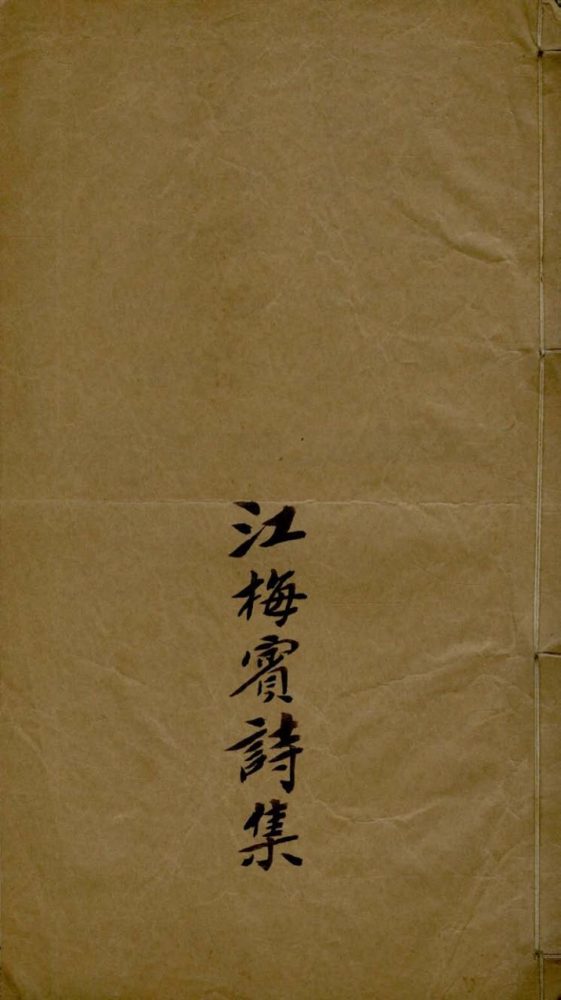 江梅賓詩集